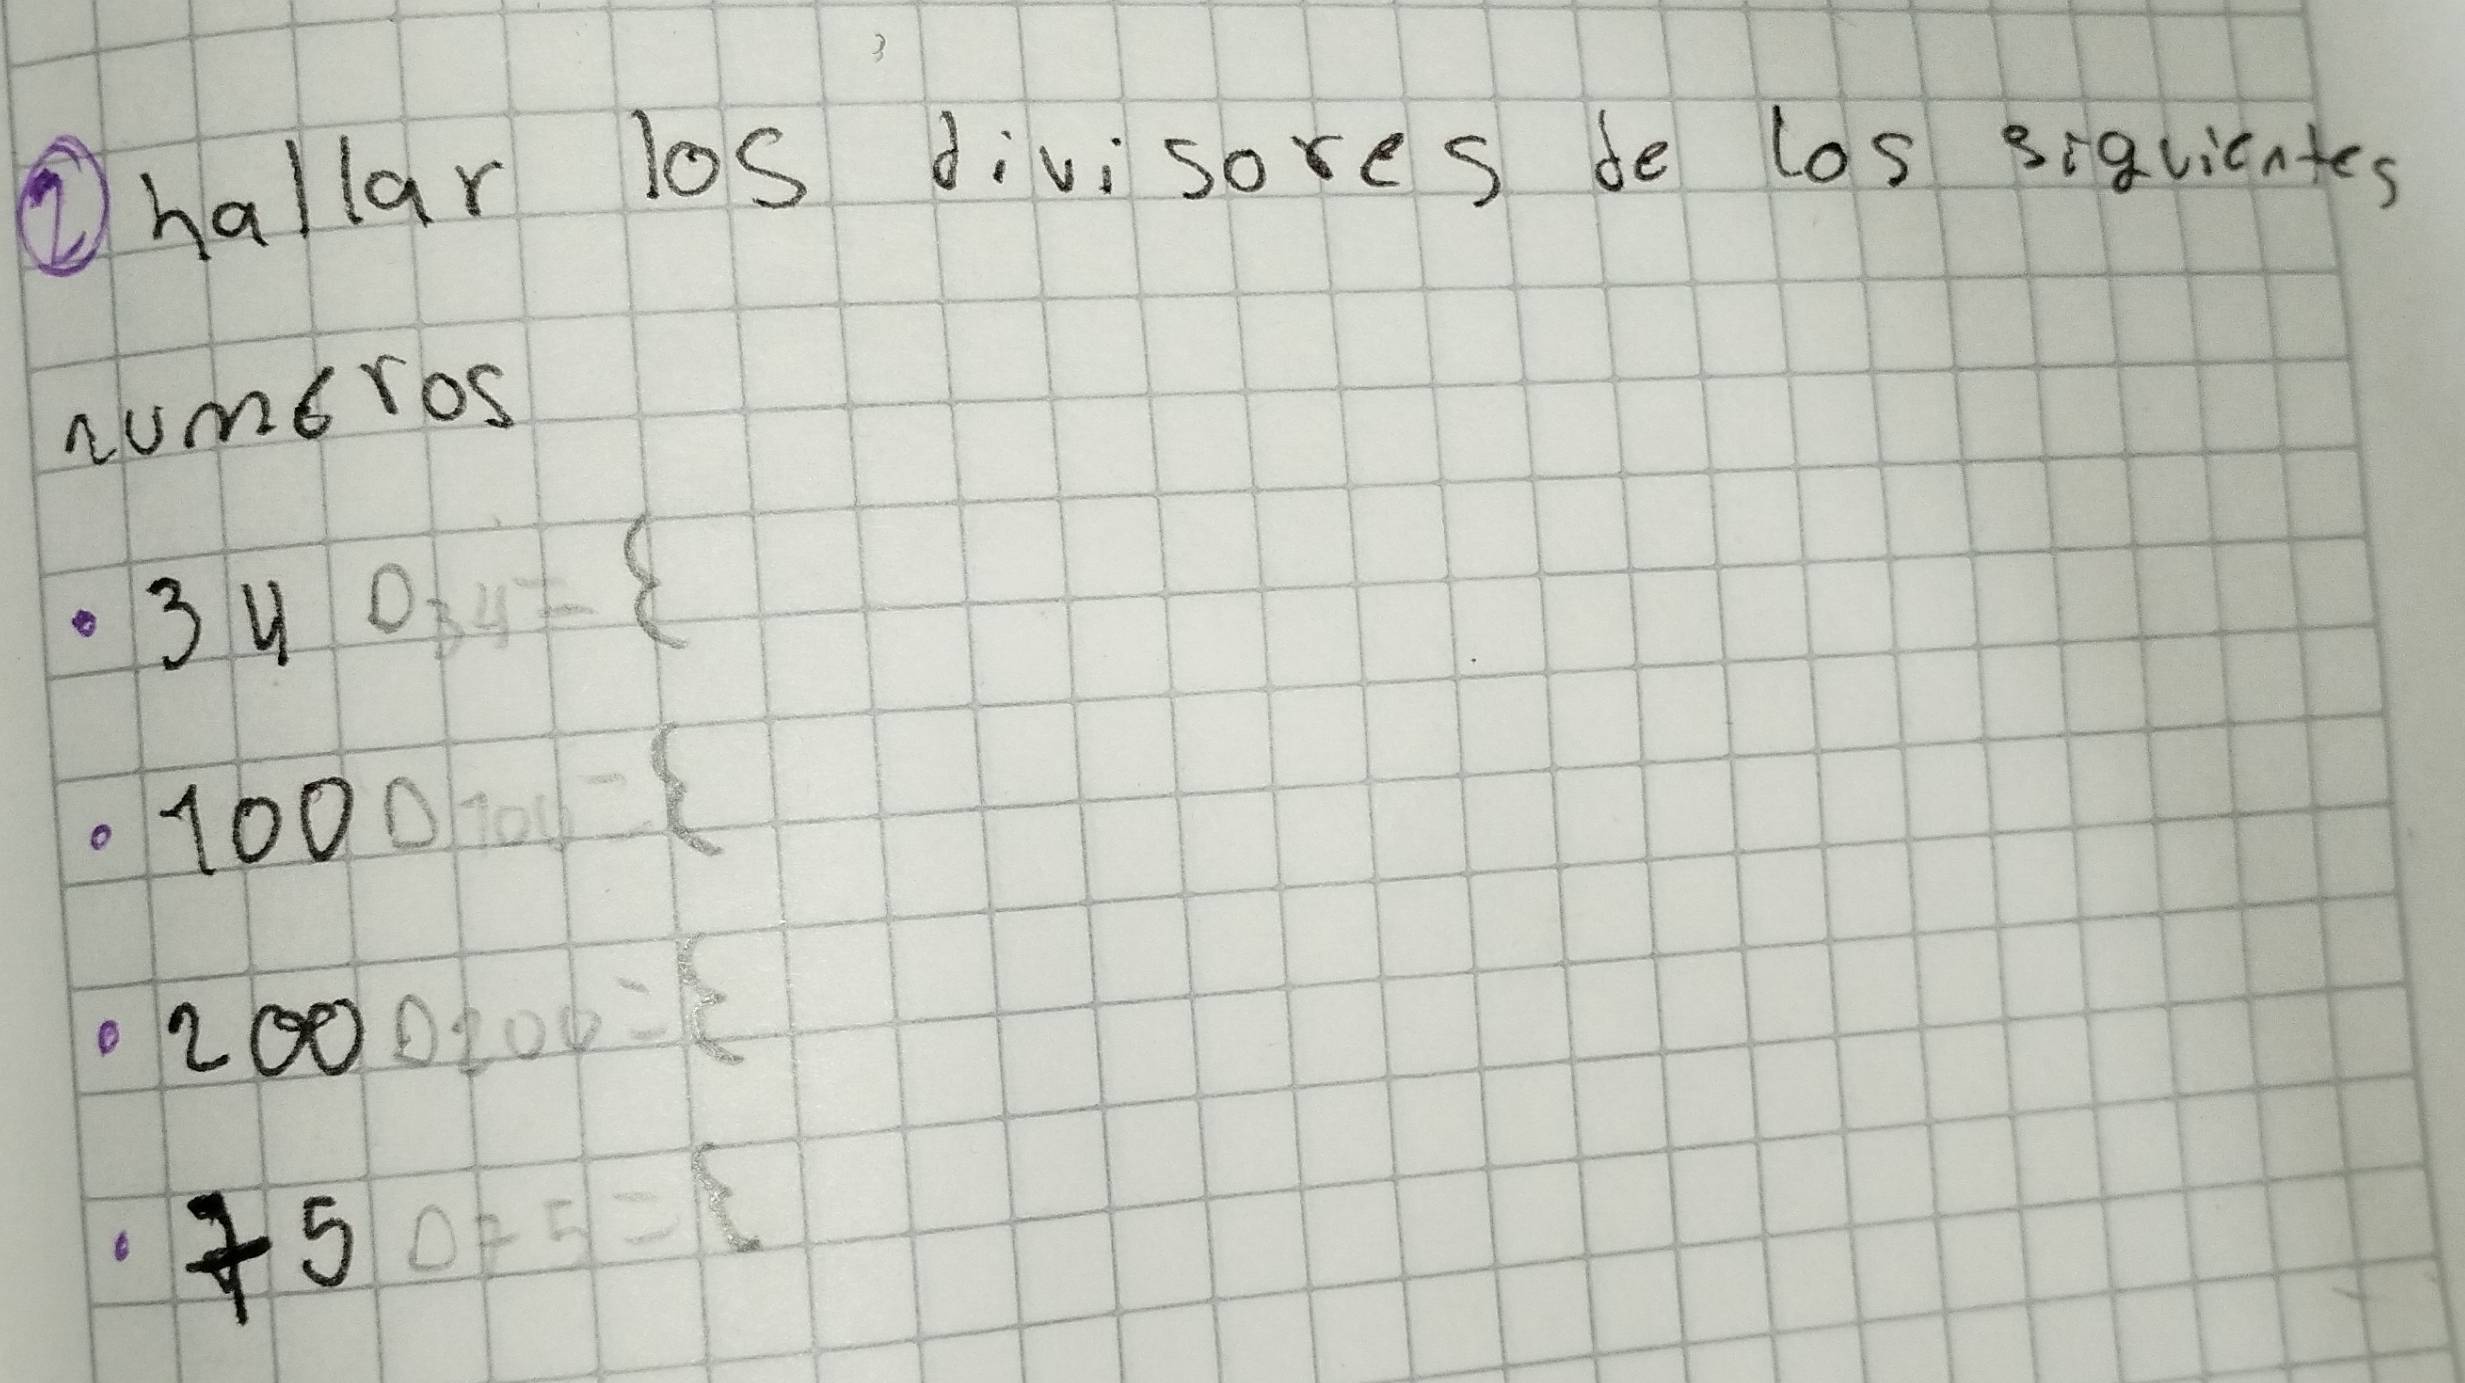 1 hallar los divisores de los siguientes
numeros
• 34 D34={
• 100 D100={
• 200 D200={
• 75 D75={